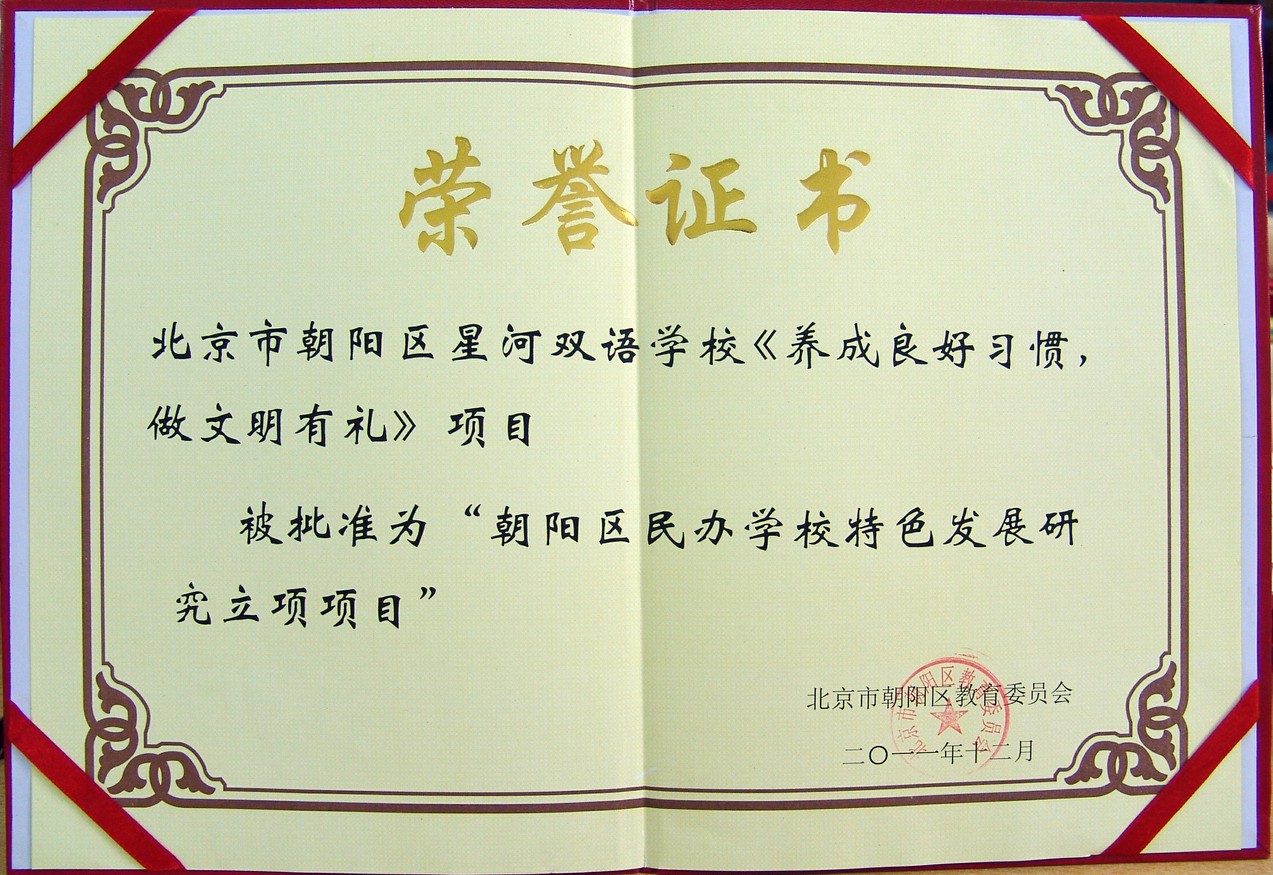 荣誉证书
北京市朝阳区星河双语学校《养成良好习惯，
做文明有礼》项目
被批准为“朝阳区民办学校特色发展研
究立项项目”
北京市朝阳区教育委员会
二〇一一年十二月
北京市朝阳区教育委员会